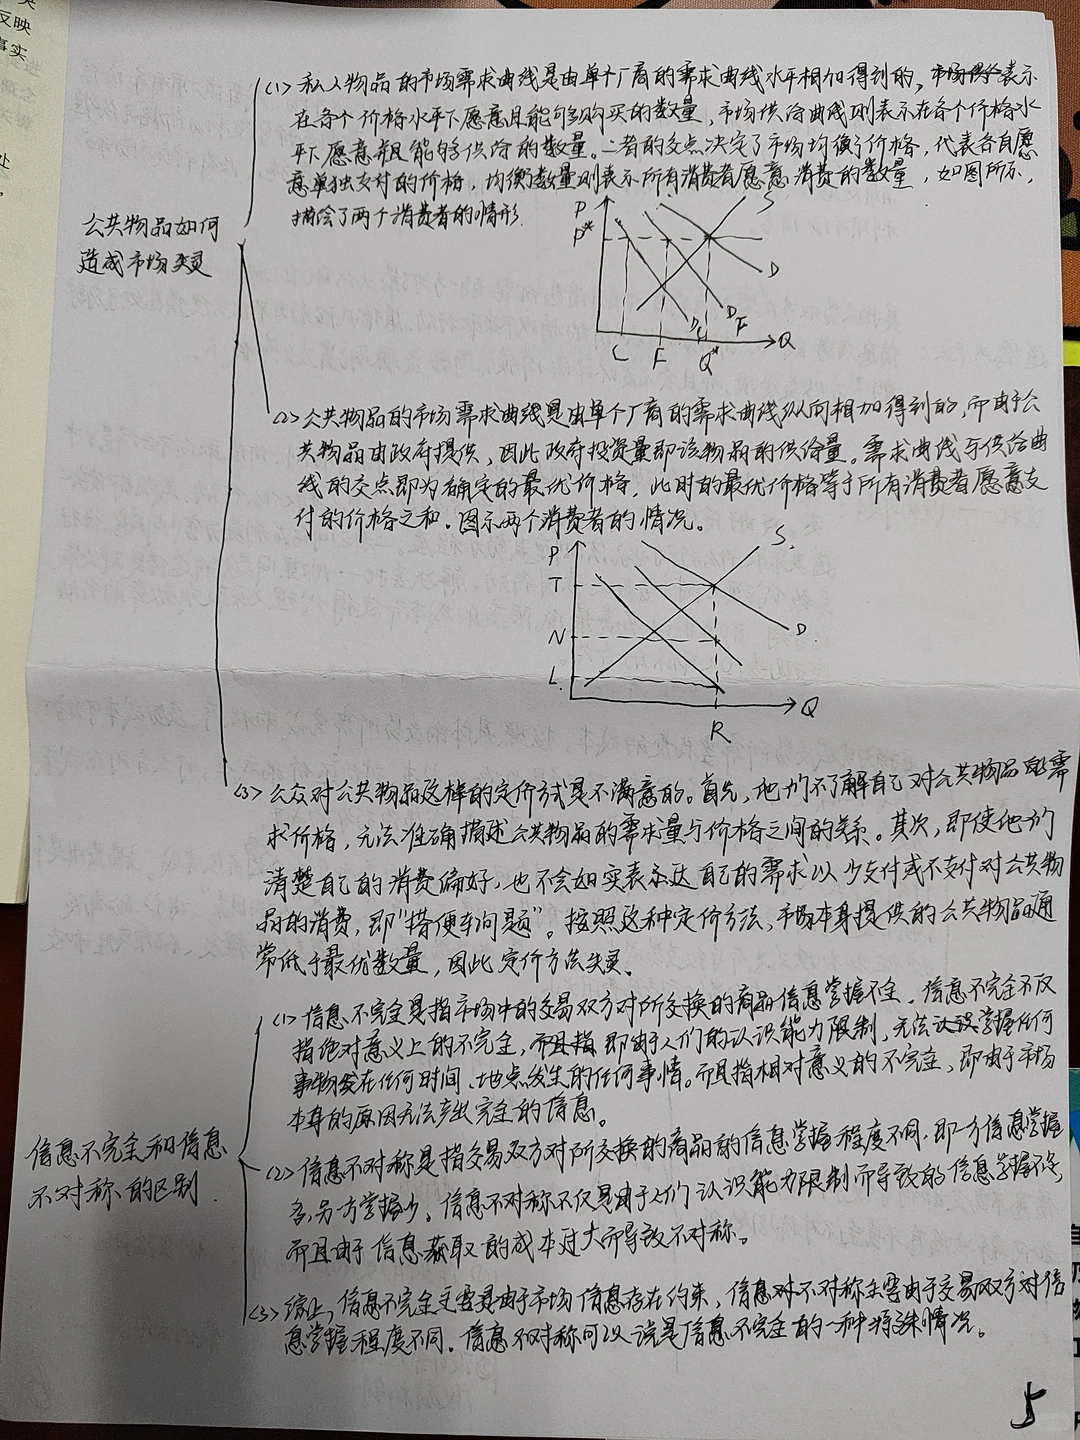 反映
事实
处
公共物品如何
造成市场失灵
(1) 私人物品的市场需求曲线是由单个厂商的需求曲线水平相加得到的，市场供给表示
在各个价格水平下愿意且能够购买的数量，市场供给曲线则表示在各个价格水
平下愿意并且能够供给的数量。二者的交点决定了市场均衡价格，代表各自愿
意单独支付的价格，均衡数量则表示所有消费者愿意消费的数量，如图所示，
描绘了两个消费者的情形.
P
S
P*
D
D_C
D_F
C
F
Q*
Q
(2) 公共物品的市场需求曲线是由单个厂商的需求曲线纵向相加得到的，而由于公
共物品由政府提供，因此政府投资量即该物品的供给量。需求曲线与供给曲
线的交点即为确定的最优价格，此时的最优价格等于所有消费者愿意支
付的价格之和．图示两个消费者的情况。
P
S.
T
N
D.
L
Q
R
(3) 公众对公共物品这样的定价方式是不满意的。首先，他们不了解自己对公共物品的需
求价格，无法准确描述公共物品的需求量与价格之间的关系。其次，即使他们
清楚自己的消费偏好，也不会如实表示达自己的需求以少支付或不支付对公共物
品的消费，即“搭便车问题”。按照这种定价方法，市场本身提供的公共物品通
常低于最优数量，因此定价方法失灵、
信息不完全和信息
不对称的区别．
(1) 信息不完全是指市场中的交易双方对所交换的商品信息掌握不全．信息不完全不仅
指绝对意义上的不完全，而且指 即由于人们的认识能力限制，无法认识掌握任何
事物发在任何时间、地点发生的任何事情。而且指相对意义的不完全，即由于市场
本身的原因无法产出完全的信息。
(2) 信息不对称是指交易双方对所交换的商品的信息掌握程度不同．即一方信息掌握
多，另一方掌握少。信息不对称不仅是由于人们认识能力限制而导致的信息掌握不全，
而且由于信息获取的成本过大而导致不对称。
(3) 综上，信息不完全主要是由于市场信息存在约束，信息对不对称主要由于交易双方对信
息掌握程度不同．信息不对称可以说是信息不完全的一种特殊情况。
5